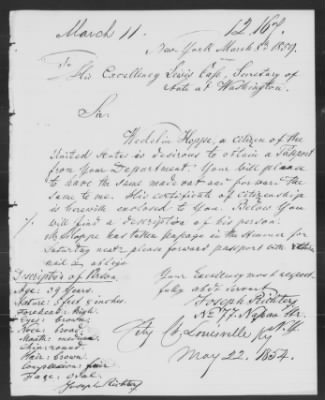 March 11. 12.167.
New-York March 8d 1859.
To
His Excellency Lewis Cass, Secretary of
State at Washington.
Sir
Wedelin Hoppe, a citizen of the
United States is desirous to obtain a Passport
from Your Department. Your will please
to have the same made out and forward the
same to me. His certificate of citizenship
is herewith enclosed to You. Below You
will find a description of his person.
Mr Hoppe has taken passage in the Steamer for
Saturday next, please forward passport with return
mail & oblige
Description of Person
Age: 34 Years.
Stature: 5 feet 8 inches.
Forehead: High.
Eyes: brown.
Nose: broad
Mouth: medium
Chin: round
Hair: brown.
Complexion: fair
Face: oval.
Joseph Richter
Your Excellency most respect-
fully obdt servant
Joseph Richter
No 77 Nassau Str.
N.Y.
City Ct. Louisville Ky
May 22. 1854.